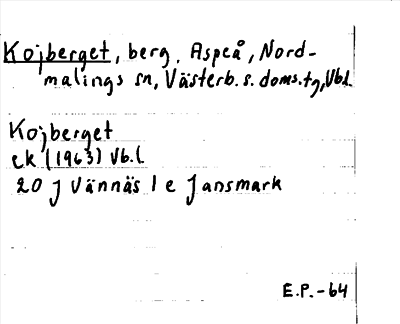 Kojberget, berg, Aspeå, Nord-
malings sn, Västerb. s. doms. tg, Vb.l.
Kojberget
ek (1963) Vb.l.
20 J Vännäs 1 e Jansmark
E.P. - 64